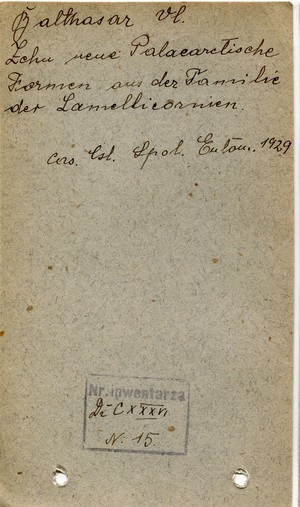 Balthasar Vl.
Zehn neue Palaearctische
Formen aus der Familie
der Lamellicornen.
Čas. Čsl. Spol. Entom. 1929
Nr. inwentarza
Dr CXXXVI
N. 15.